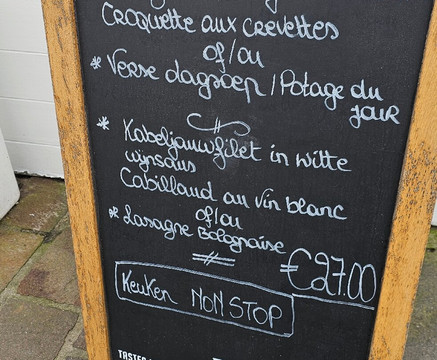 Croquette aux crevettes
of/ou
* Verse dagsoep / Potage du
jour
* Kabeljauwfilet in witte
wijnsaus
Cabillaud au vin blanc
of/ou
* Lasagne Bolognaise
= €27.00
Keuken NON STOP